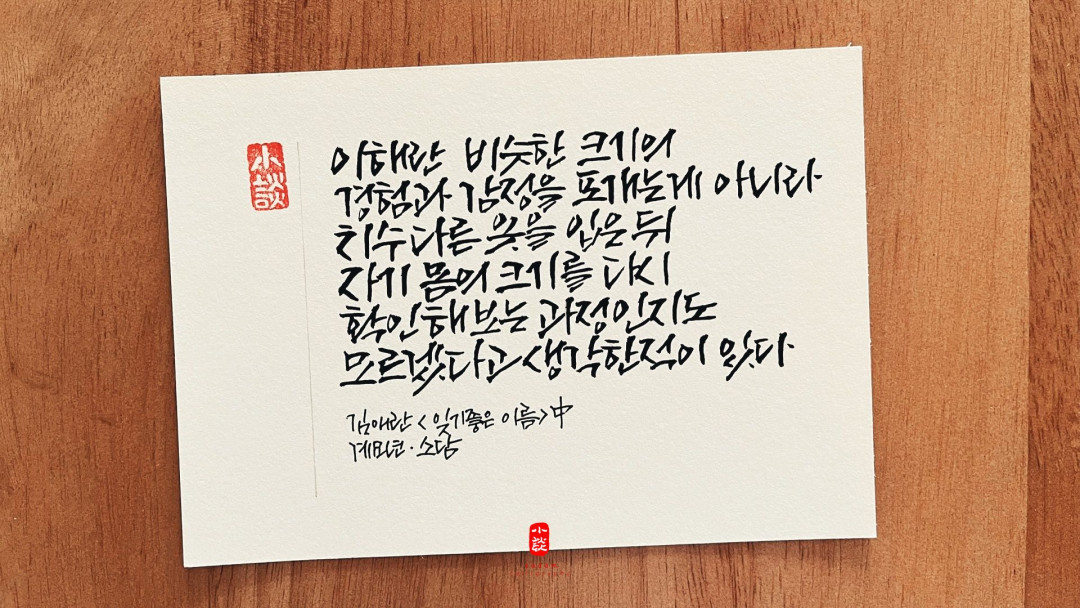 小談
이해란 비슷한 크기의
경험과 감정을 포개는게 아니라
치수 다른 옷을 입은 뒤
자기 몸의 크기를 다시
확인해보는 과정인지도
모르겠다고 생각한적이 있다
김애란 <잊기좋은 이름> 中
계묘년·소담
小談